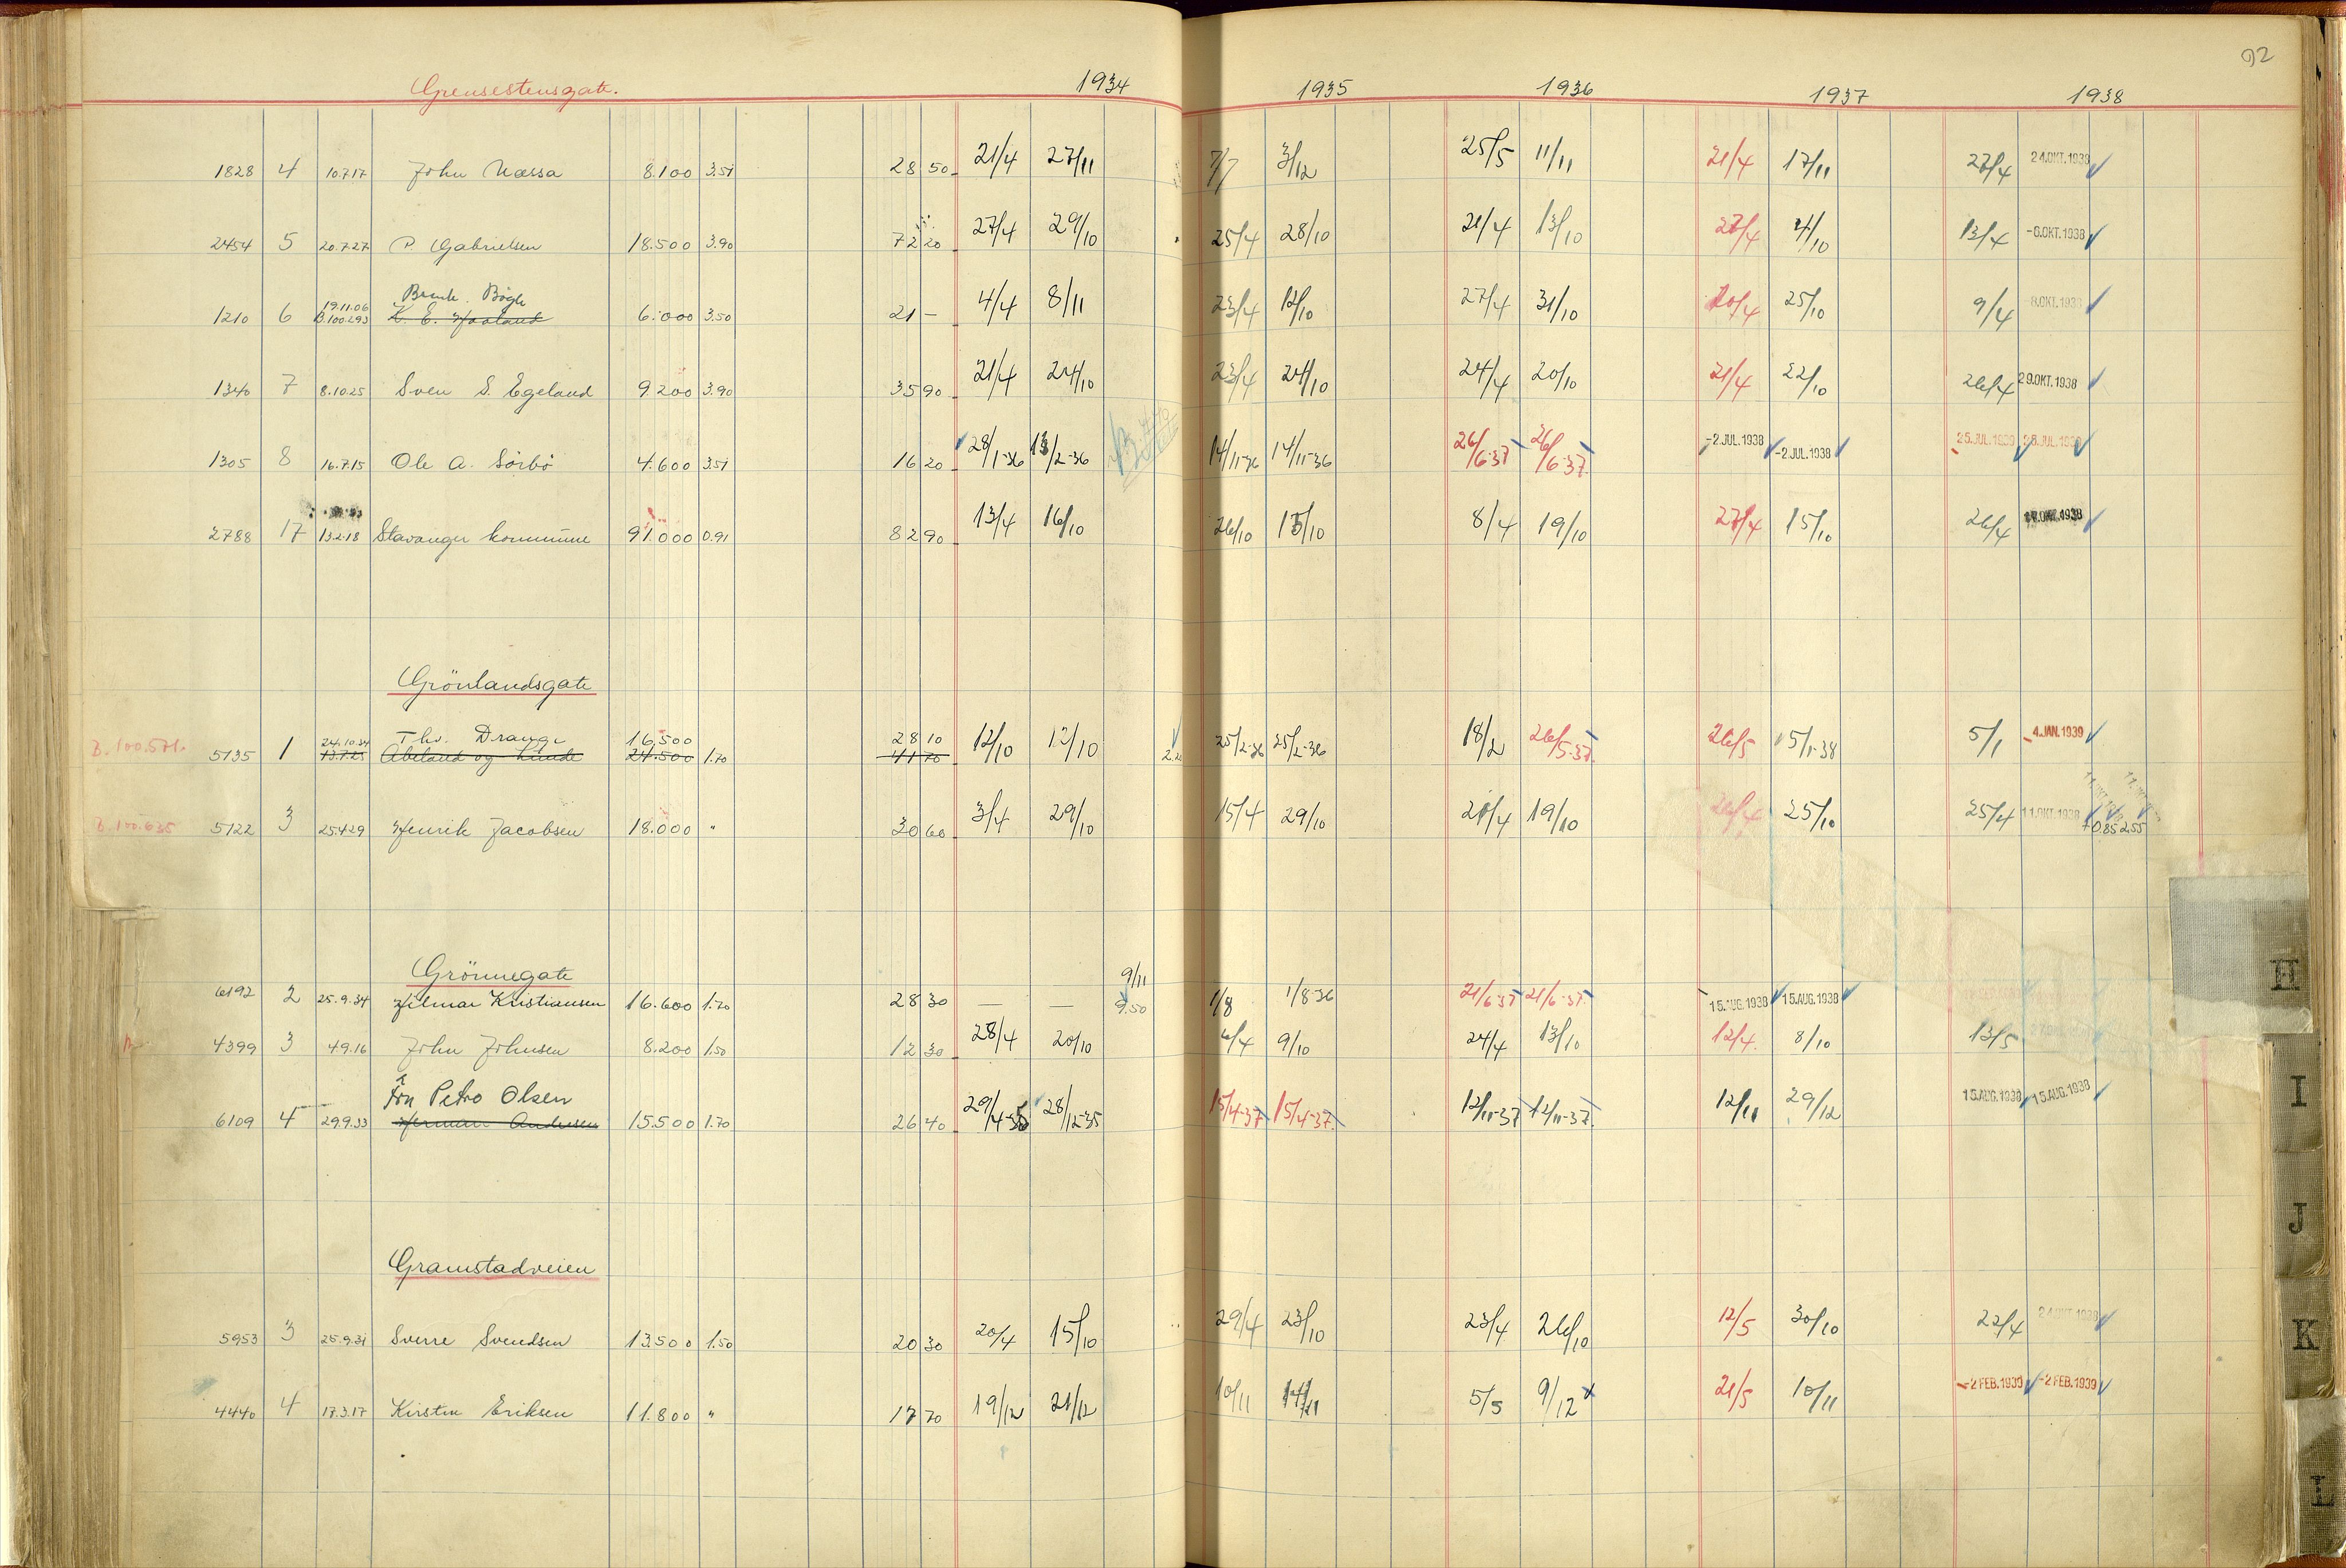 92
Grensestensgate. 1934 1935 1936 1937 1938
1828 4 10.7.17 John Næssa 8.100 3.51 28 50 21/4 27/11 7/7 3/12 25/5 11/11 21/4 17/11 27/4 24.OKT.1938
2454 5 20.7.27 P. Gabrielsen 18.500 3.90 72 20 27/4 29/10 25/4 28/10 21/4 13/10 27/4 4/10 13/4 -6.OKT.1938
19.11.06 Bøgh
1210 6 B.100.293 K. E. Haaland 6.000 3.50 21 - 4/4 8/11 23/4 12/10 27/4 31/10 20/4 25/10 9/4 8.OKT.1938
1340 7 8.10.25 Sven S. Egeland 9.200 3.90 35 90 21/4 24/10 23/4 24/10 24/4 20/10 21/4 22/10 26/4 29.OKT.1938
1305 8 16.7.15 Ole A. Sörbö 4.600 3.51 16 20 28/1-36 13/2-36 14/11-36 14/11-36 26/6-37 26/6-37 -2.JUL.1938 -2.JUL.1938 25.JUL.1939 25.JUL.1939
2788 17 13.2.18 Stavanger kommune 91.000 0.91 82 90 13/4 16/10 26/10 15/10 8/4 19/10 27/4 15/10 26/4
Grönlandsgate
B.100.571. 24.10.34 Thv. Drange 16.500 28 10
5135 1 13.7.25 Abeland og Lunde 24.500 1.70 41 70 12/10 12/10 2.20 25/2-36 25/2-36 18/2 26/5-37 26/5 15/1-38 5/1 4.JAN.1939
B.100.635 5122 3 25.4.29 Henrik Jacobsen 18.000 " 30 60 3/4 29/10 15/4 29/10 20/4 19/10 26/4 25/10 25/4 11.OKT.1938 +0.85 2.55
Grönnegate
9/11
6192 2 25.9.34 Hilmar Kristiansen 16.600 1.70 28 30 — — 9.50 1/8 1/8-36 21/6-37 21/6-37 15.AUG.1938 15.AUG.1938
4399 3 4.9.16 John Johnsen 8.200 1.50 12 30 28/4 20/10 6/4 9/10 24/4 13/10 12/4 8/10 13/5
Fru Petro Olsen
6109 4 29.9.33 Herman Andresen 15.500 1.70 26 40 29/4-35 28/12-35 15/4-37 15/4-37 12/11-37 12/11-37 12/11 29/12 15.AUG.1938 15.AUG.1938
Gramstadveien
5953 3 25.9.31 Sverre Svendsen 13.500 1.50 20 30 20/4 15/10 29/4 23/10 23/4 26/10 12/5 30/10 22/4 24.OKT.1938
4440 4 17.3.17 Kirstin Eriksen 11.800 " 17 70 19/12 21/12 10/11 14/11 5/5 9/12 21/5 10/11 -2 FEB.1939 -2 FEB.1939
H
I
J
K
L